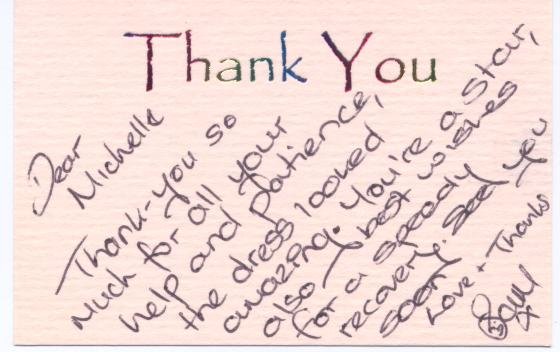 Thank You
Dear
Michelle
Thank-you so
much for all your
help and patience,
the dress looked
amazing. You're a star,
also best wishes
for a speedy
recovery. Seen you
soon
Love + Thanks